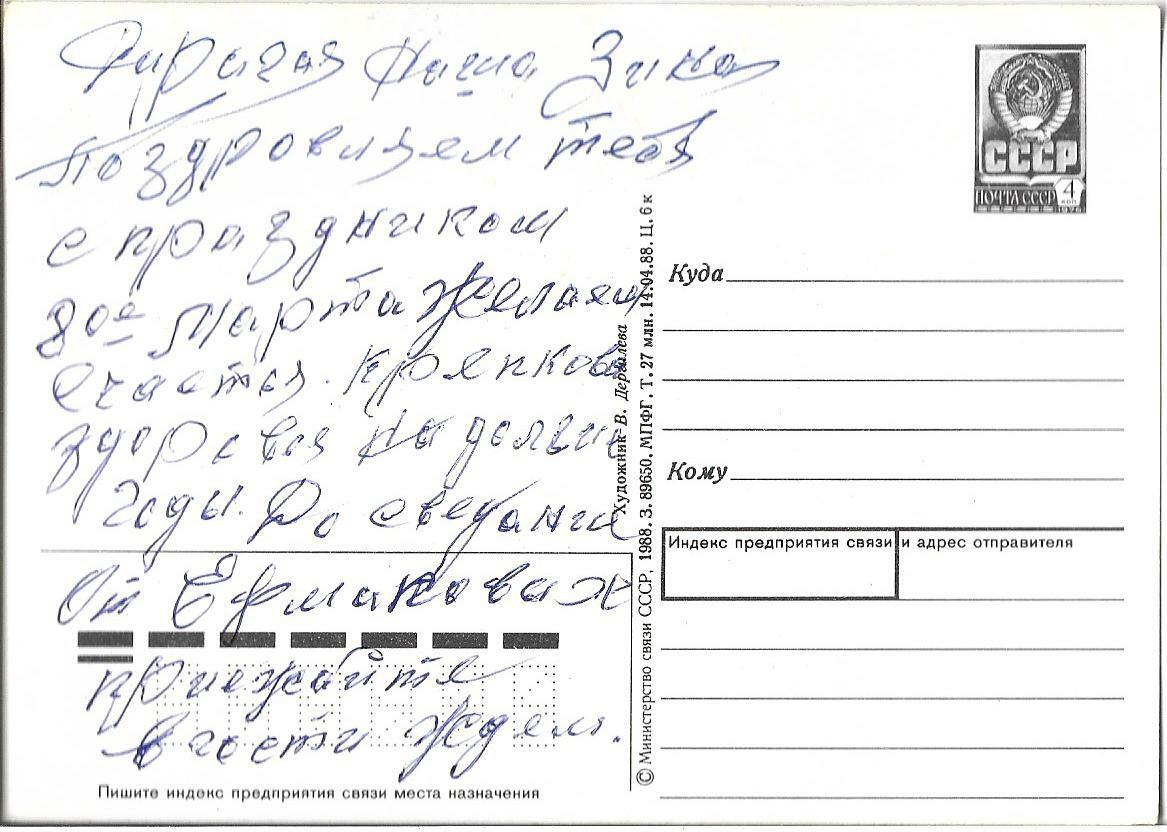 Дирагая Наша Зика
Поздровляем тебя
с праздником
8ое марта желаем
счастья. Кряпкова
здоровья на долгие
годы. До сведания
От Ермаковах
приежайте
в гости ждем.
СССР
ПОЧТА СССР 4 коп
Куда
Кому
Индекс предприятия связи и адрес отправителя
Пишите индекс предприятия связи места назначения
© Министерство связи СССР, 1988. З. 89650. МПФГ. Т. 27 млн. 14.04.88. Ц. 6 к
Художник В.